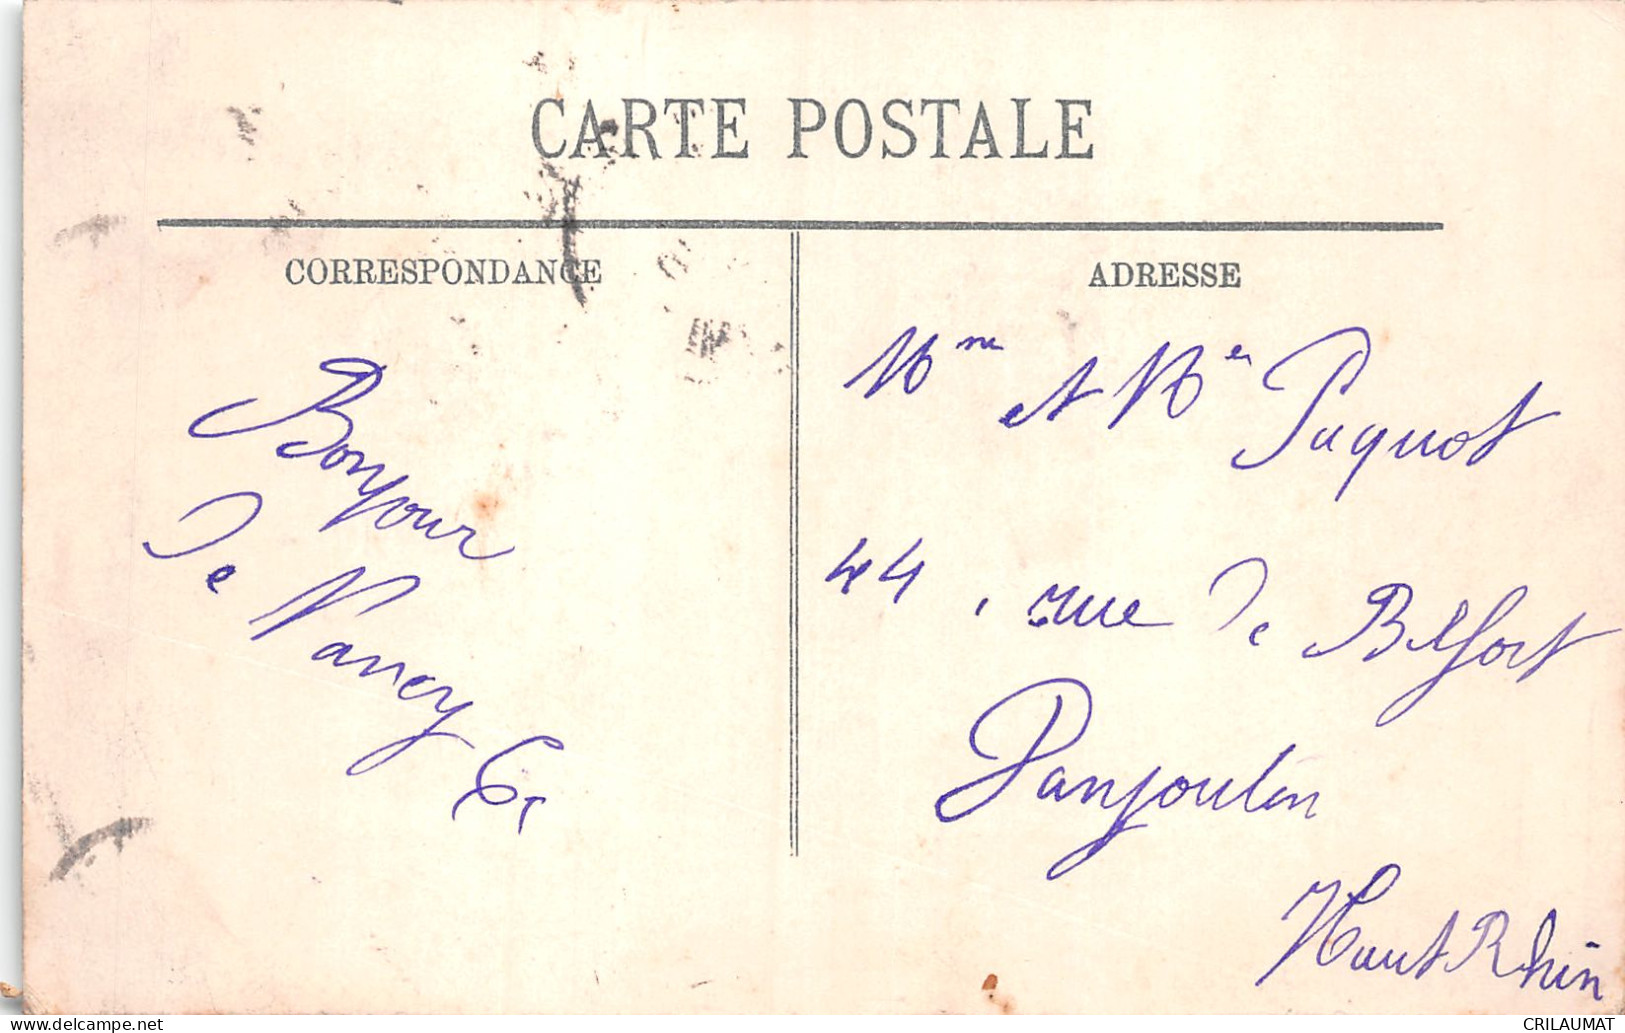 CARTE POSTALE
CORRESPONDANCE
Bonjour
de Nancy
ADRESSE
Mme et Mr Paquot
44, rue de Belfort
Danjoutin
Haut Rhin
CRILAUMAT